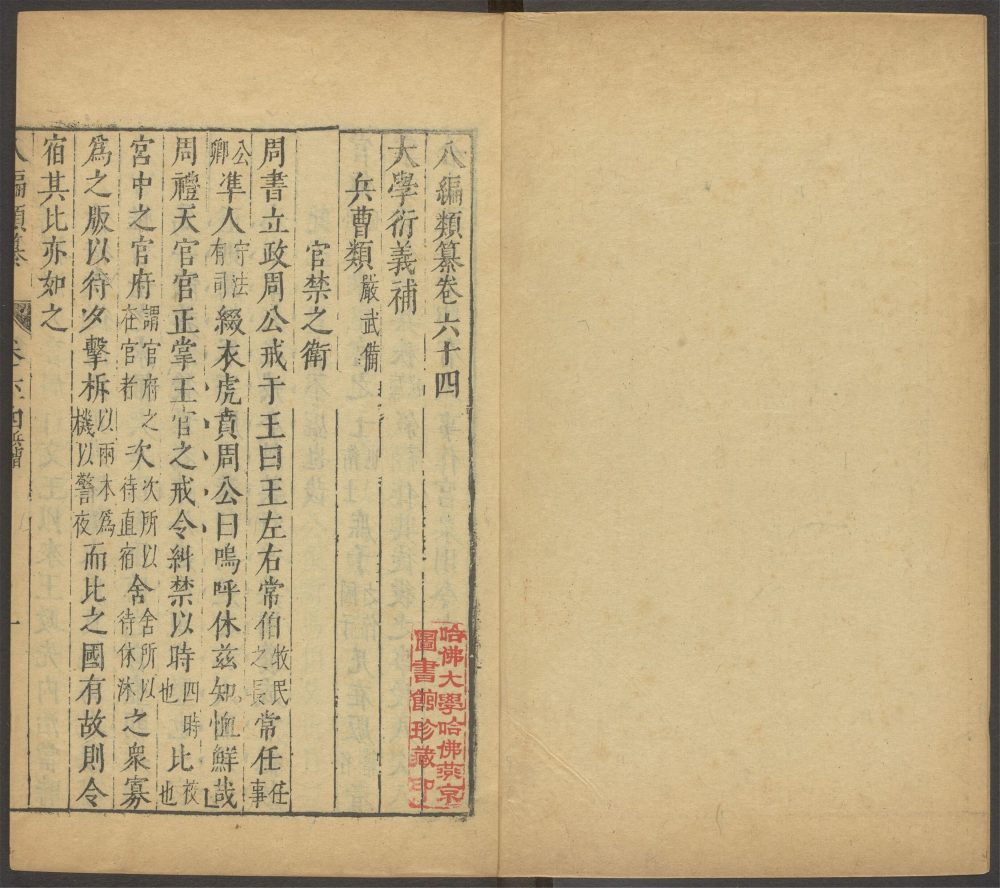 八編類纂卷六十四
大學衍義補
兵曹類嚴武備
官禁之衛
周書立政周公戒于王曰王左右常伯牧民之長常任任事
公卿準人守法有司綴衣虎賁周公曰嗚呼休茲知恤鮮哉
周禮天官官正掌王官之戒令糾禁以時四時也比校也
宮中之官府謂官府之在官者次次所以待直宿舍舍所以待休沐之衆寡
爲之版以待夕擊柝以兩木爲機以警夜而比之國有故則令
宿其比亦如之
八編類纂 卷六十四 一
哈佛大學哈佛燕京
圖書館珍藏印